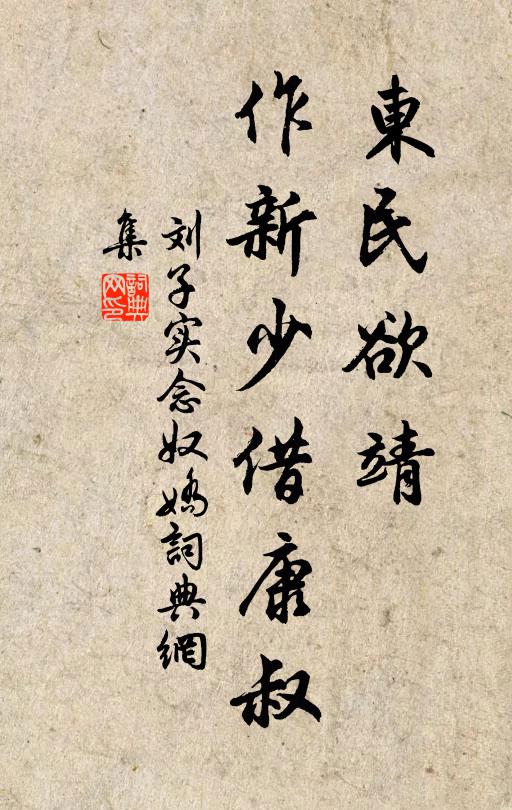 東民欲靖
作新少借康叔
刘子实念奴嬌詞典網
集
詞典
网印